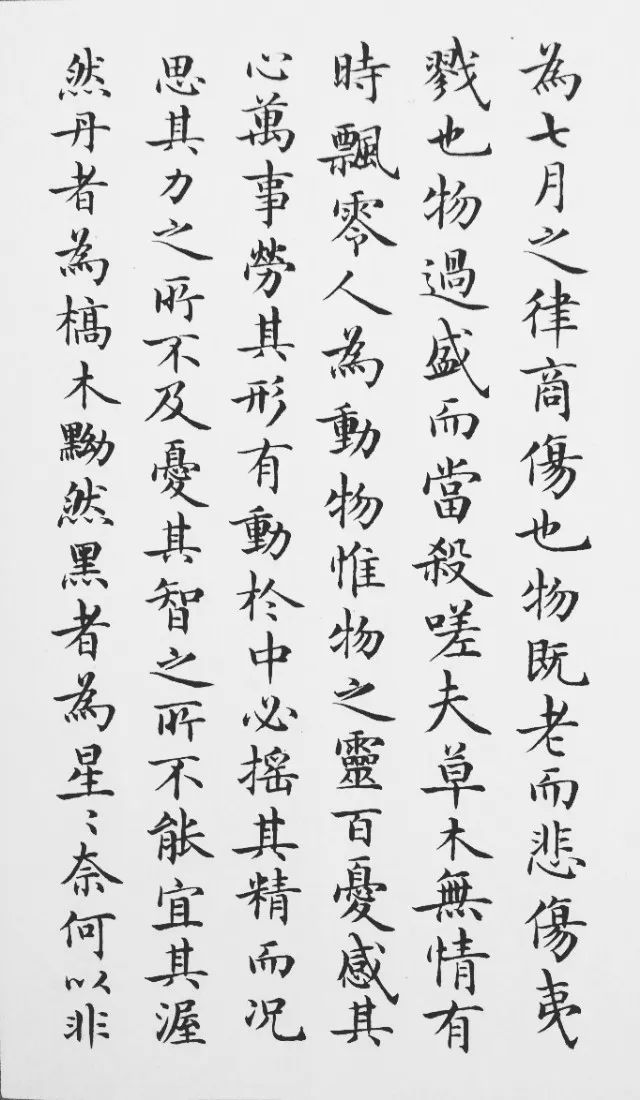 為七月之律商傷也物既老而悲傷夷
戮也物過盛而當殺嗟夫草木無情有
時飄零人為動物惟物之靈百憂感其
心萬事勞其形有動於中必搖其精而况
思其力之所不及憂其智之所不能宜其渥
然丹者為槁木黝然黑者為星〻奈何以非